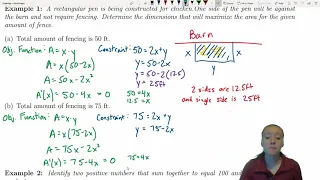 Example 1: A rectangular pen is being constructed for chicken. One side of the pen will be against
the barn and not require fencing. Determine the dimensions that will maximize the area for the given
amount of fence.
(a) Total amount of fencing is 50 ft.
Obj. Function: A = x·y Constraint: 50 = 2x + y
A = x(50-2x) y = 50-2x
A = 50x - 2x² y = 50-2(12.5)
y = 25ft
A'(x) = 50-4x = 0 50 = 4x
12.5 = x
Barn
x x
y
2 sides are 12.5ft
and single side is 25ft
(b) Total amount of fencing is 75 ft.
Obj. Function: A = x·y Constraint: 75 = 2x + y
A = x(75-2x) y = 75-2x
A = 75x - 2x²
A'(x) = 75-4x = 0 75 = 4x
Example 2: Identify two positive numbers that sum together to equal 100 and